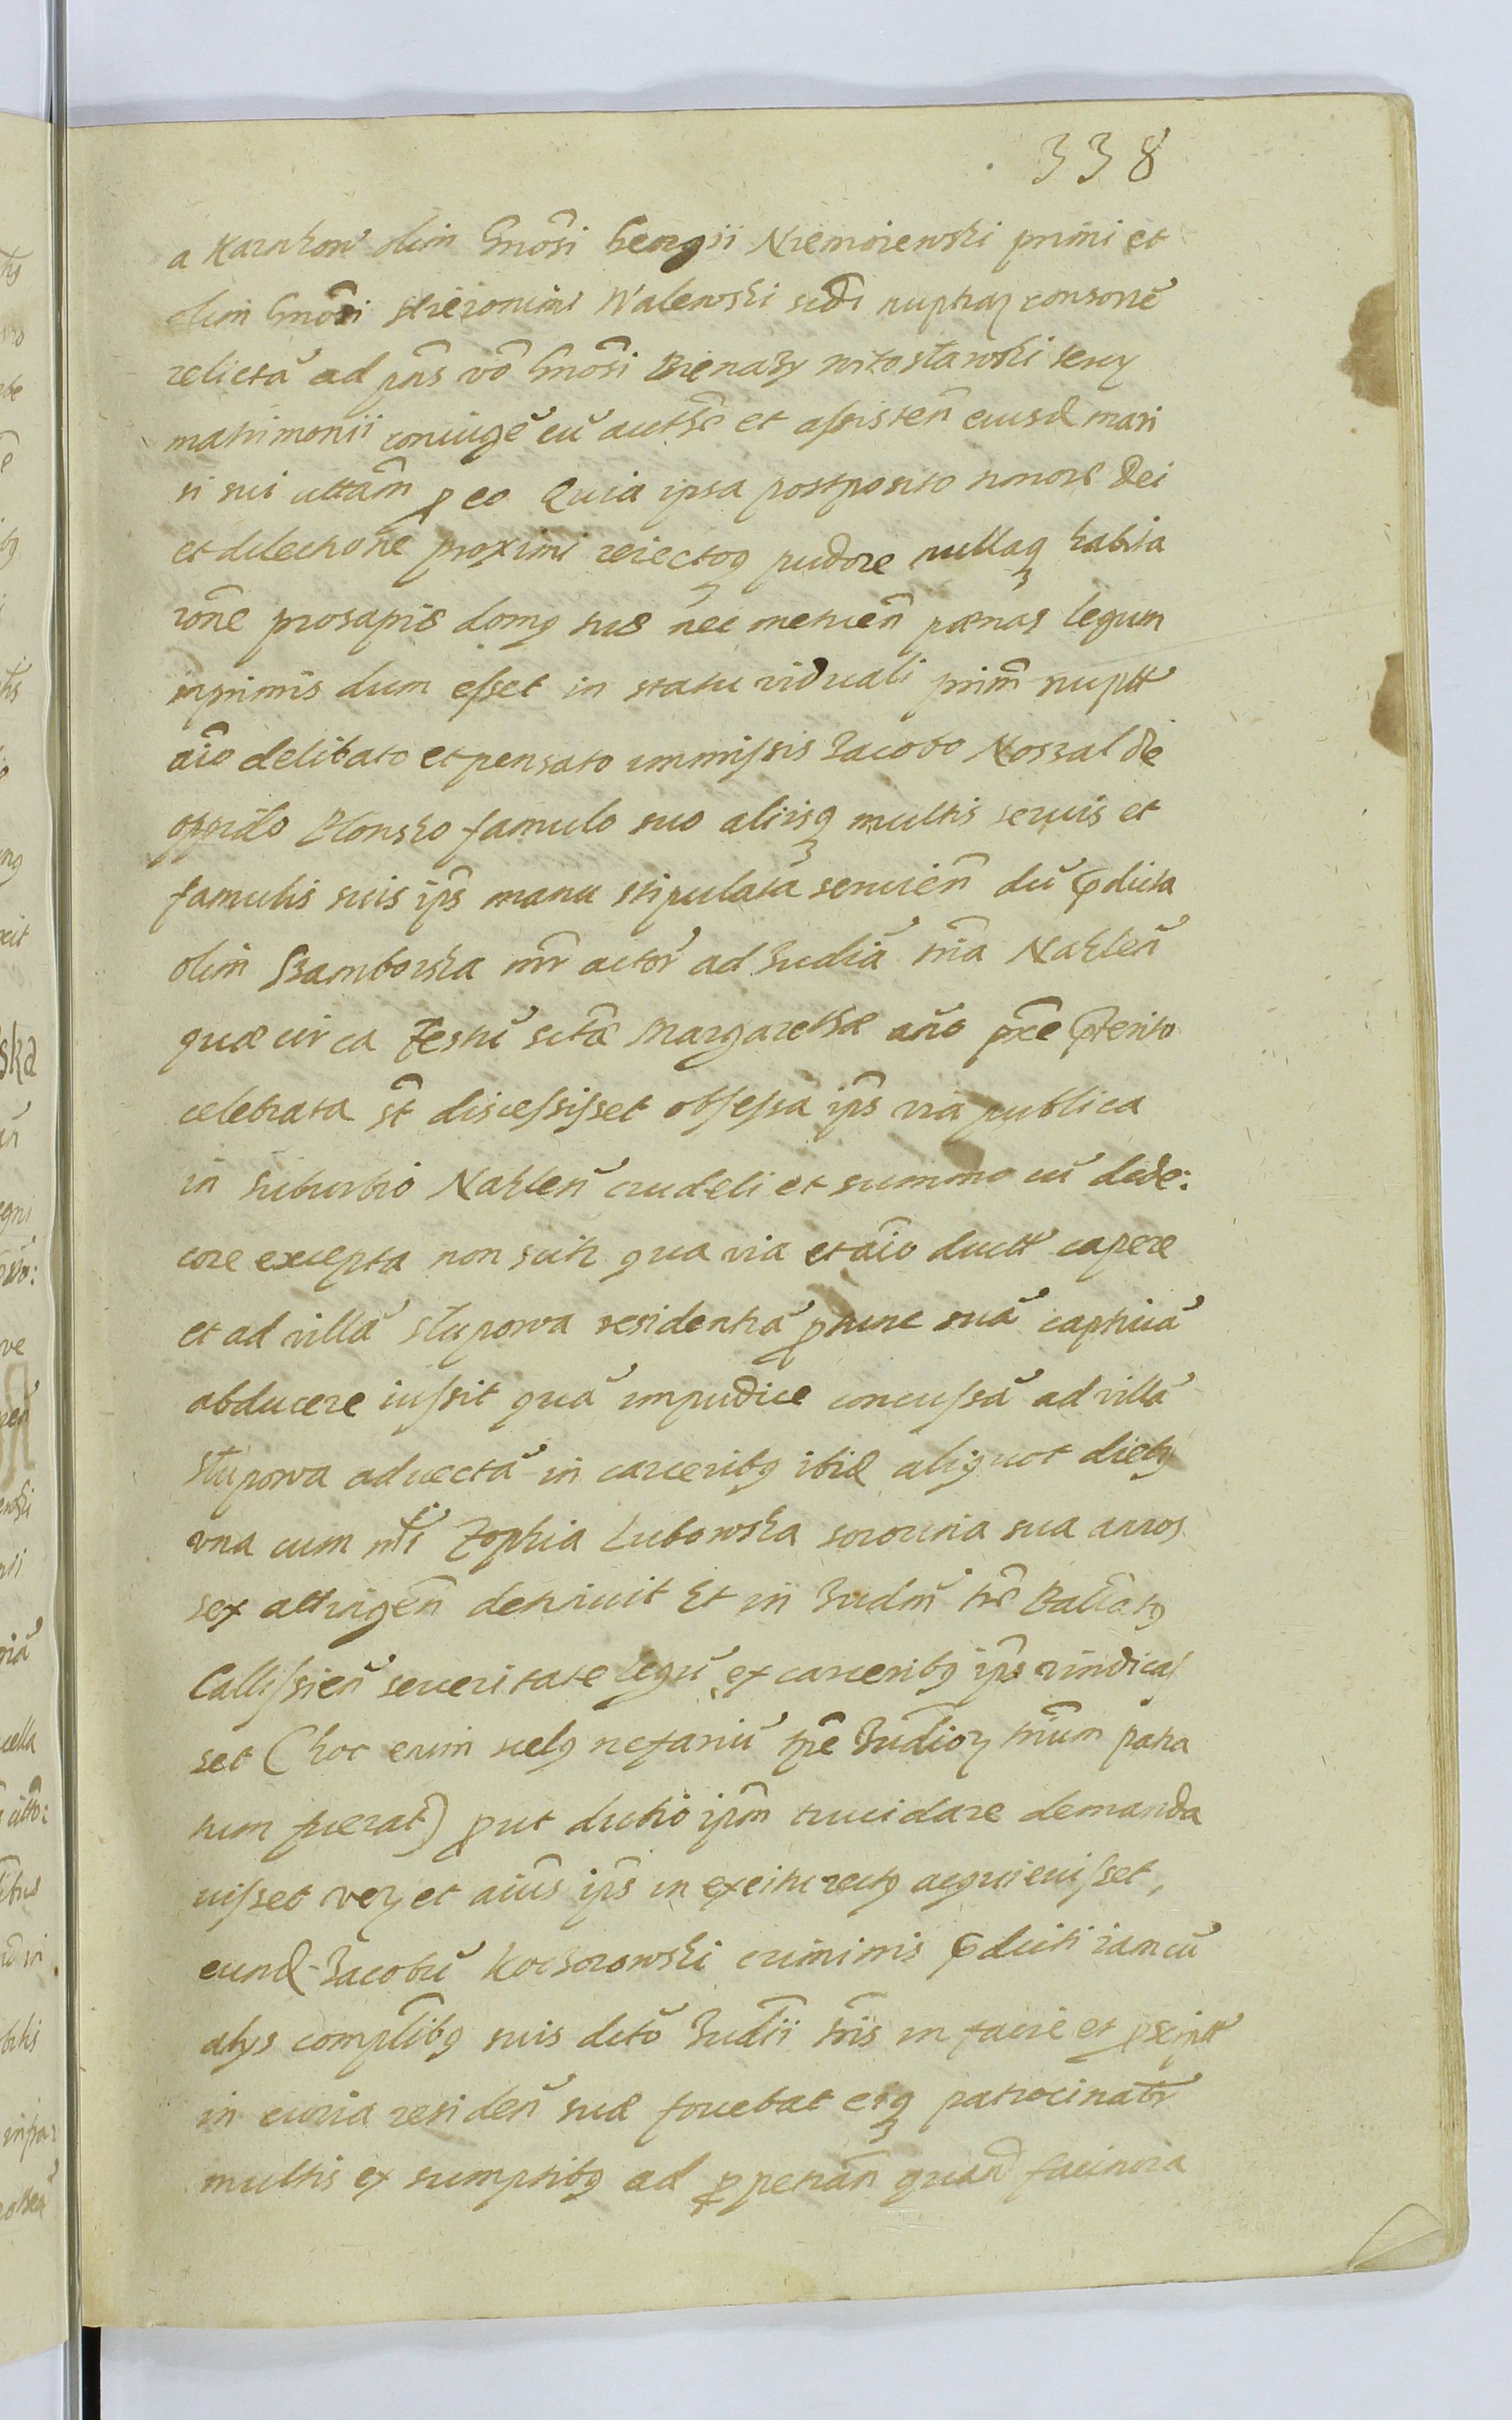 338
a Karnkow olim Gnosi Georgii Niemoiewski primi et
olim Gnosi Hieronimi Walewski scdi nuptiaꝝ consorte
relictã ad pñs vo Gnosi Bienasz Witosławski tercy
matrimonii coniugẽ cũ authe et assisteñ eiusd mari
ti sui cittam p eo Quia ipsa postposito honore Dei
et dilectione proximi reiectoq pudore nullaq habita
rone prosapiæ domq suæ nec metueñ pœnas legum
inprimis dum esset in statu viduali prim nuptt
aio delibato et pensato immissis Jacobo Noszal de
oppido Blonsko famulo suo aliisq multis seruis et
famulis suis ips manu stipulata seruieñ dũ pdicta
olim Szamborska mr actor ad Judicia tria Naklen
quæ circa Festũ sctæ Margarethæ año pxe pterito
celebrata st discessisset obsessa ips via publica
in suburbio Naklen crudeli et summo cũ dede:
core excepta non scitr qua via et aio ductt capere
et ad villã Słupowa residentiã p tunc suã captiuã
abducere iussit quã impudice concussã ad villã
Słupowa aduectã in carceribq ibid aliquot diebq
vna cum Zophia Lubowska sororina sua annos
sex attingeñ detinuit Et ni Judm tre Palatq
Callissieñ seueritate legũ ex carceribq ips vindicas
set (hoc enim scelq nefariũ tpe Judioꝝ trium patra
tum fuerat) put dubio ipm trucidare demanda
uisset veꝝ et aius ips in exeitu rectq acquieuisset,
eund Jacobũ Koczorowski criminis pdicti iam cũ
alys complibq suis detto Judii tris in facie et pscriptt
in curia resideñ suæ fouebat eiq patrocinabr
multis ex sumptibq ad ppetrañ quæd facinora